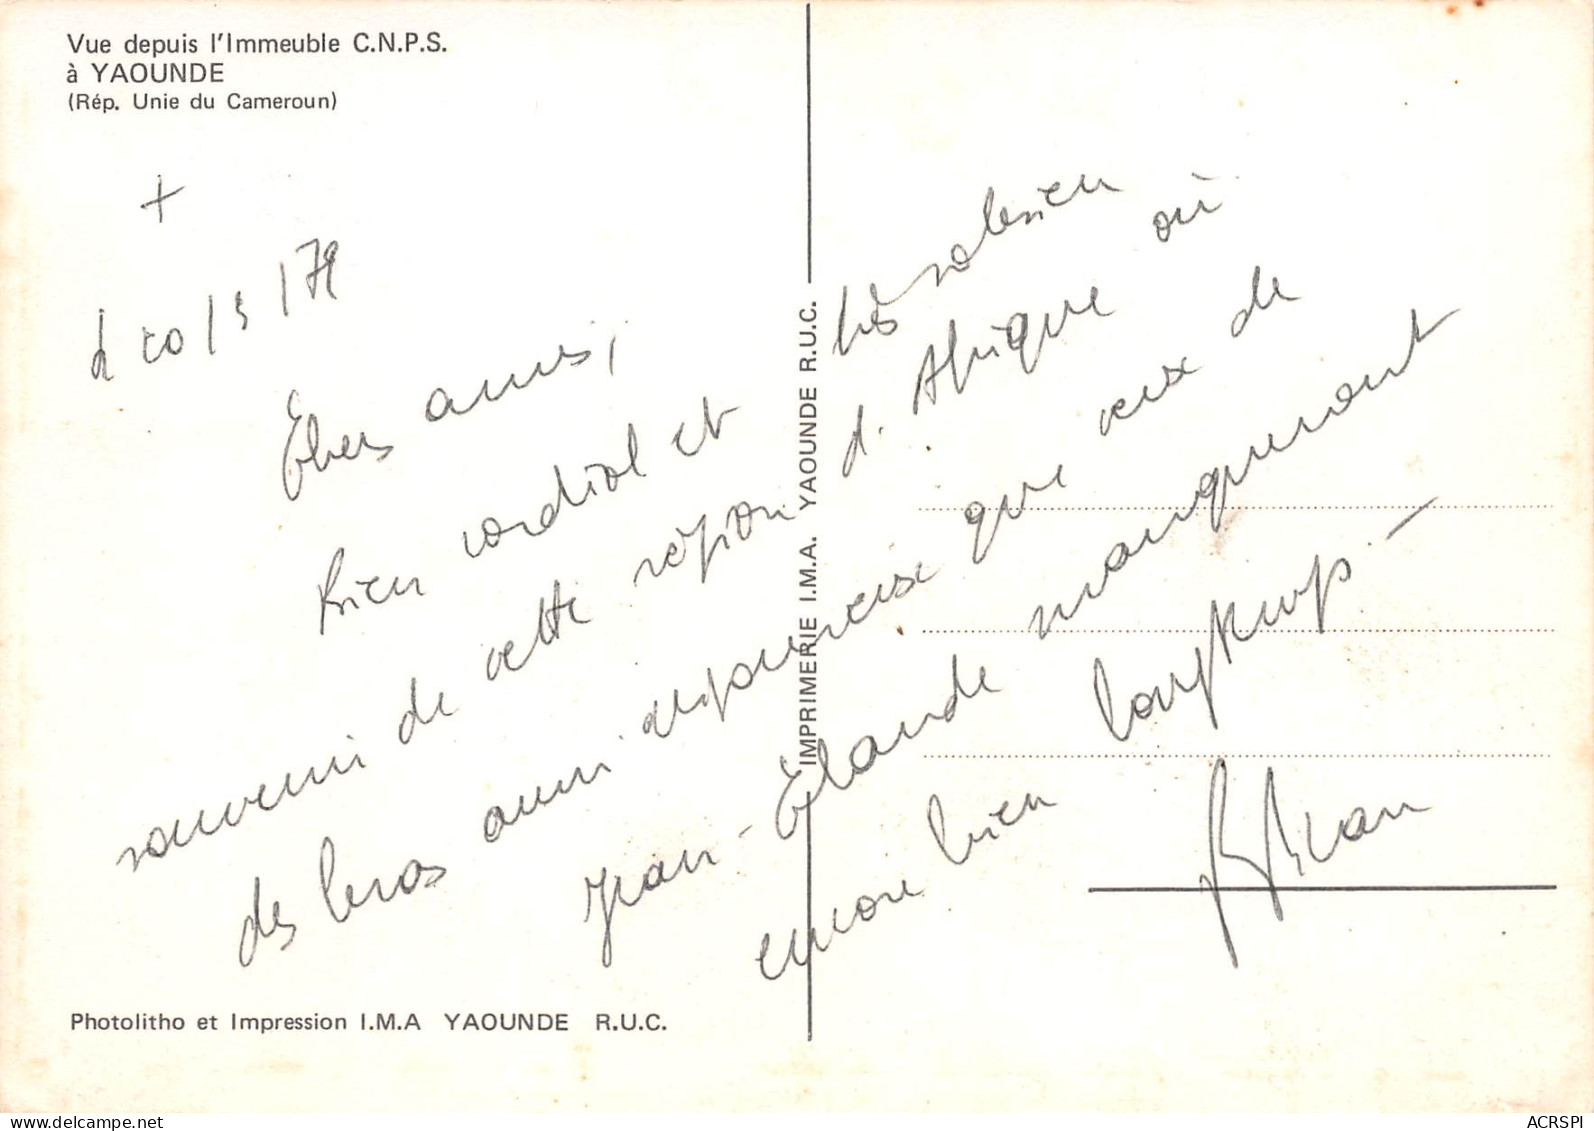 Vue depuis l'Immeuble C.N.P.S.
à YAOUNDE
(Rép. Unie du Cameroun)
+
20/5/79
Chers amis,
Bien cordial et très salésien
souvenir de cette région d'Afrique où
des bras aussi que ceux de
Jean-Claude manqueront
encore bien longtemps. —
IMPRIMERIE I.M.A. YAOUNDE R.U.C.
Photolitho et Impression I.M.A YAOUNDE R.U.C.
ACRSPI